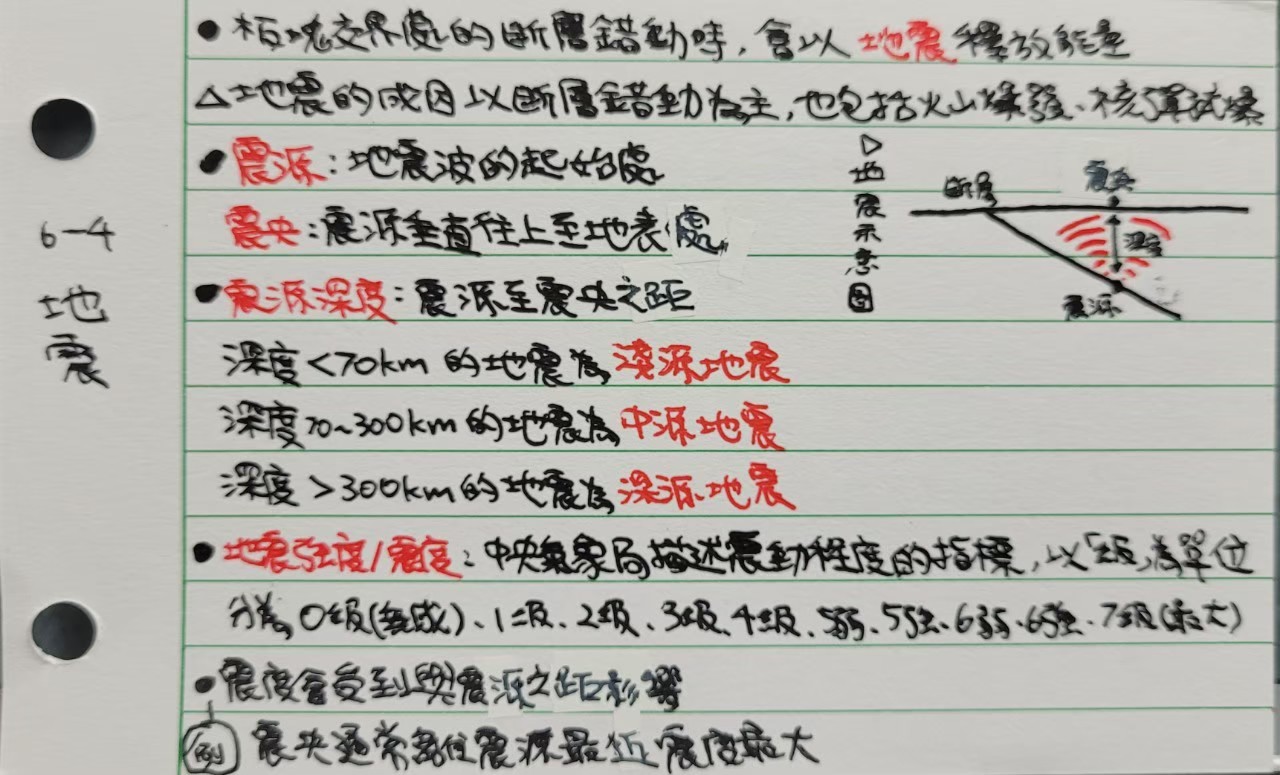 6-4
地
震
● 板塊交界處的斷層錯動時，會以地震釋放能量
△地震的成因以斷層錯動為主，也包括火山爆發、核彈試爆
● 震源：地震波的起始處
震央：震源垂直往上至地表處
● 震源深度：震源至震央之距
深度<70km的地震為淺源地震
深度70~300km的地震為中源地震
深度>300km的地震為深源地震
▷地震示意圖
斷層
震央
深度
震源
● 地震強度/震度：中央氣象局描述震動程度的指標，以「級」為單位
分為0級(無感)、1級、2級、3級、4級、5弱、5強、6弱、6強、7級(最大)
● 震度會受到與震源之距影響
例 震央通常離震源最近震度最大